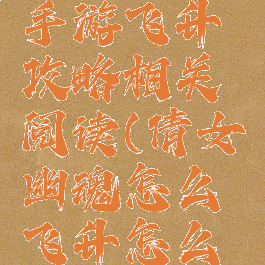 手游飞升
攻略相关
阅读(倩女
幽魂怎么
飞升怎么